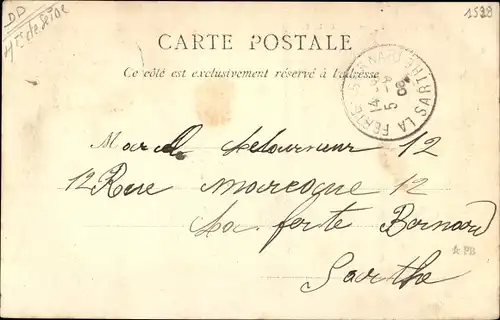 DD
1538
CARTE POSTALE
Ce côté est exclusivement réservé à l'adresse
LA FERTE-BERNARD SARTHE
14 5
Marcel Letourneur 12
12 Rue 12
La ferte Bernard
Sarthe
PB